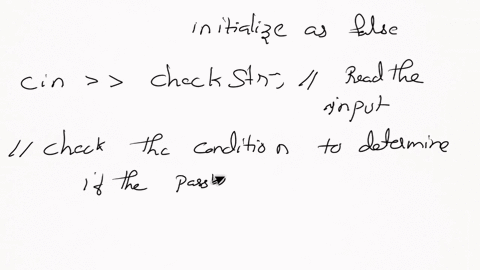 initialize as false
cin >> checkStr; // Read the
input
// check the condition to determine
if the pass